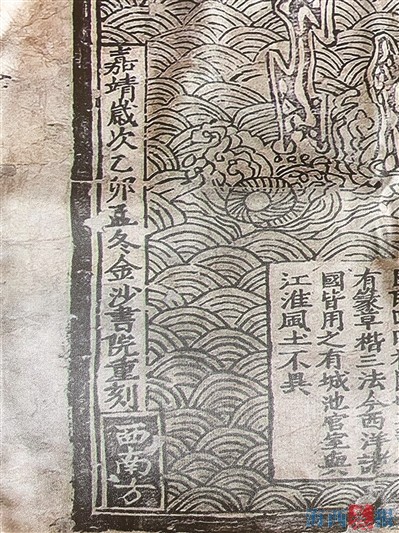 有篆草楷三法今西洋諸
國皆用之有城池官室與
江淮風土不異
嘉靖歲次乙卯孟冬金沙書院重刻
西南方